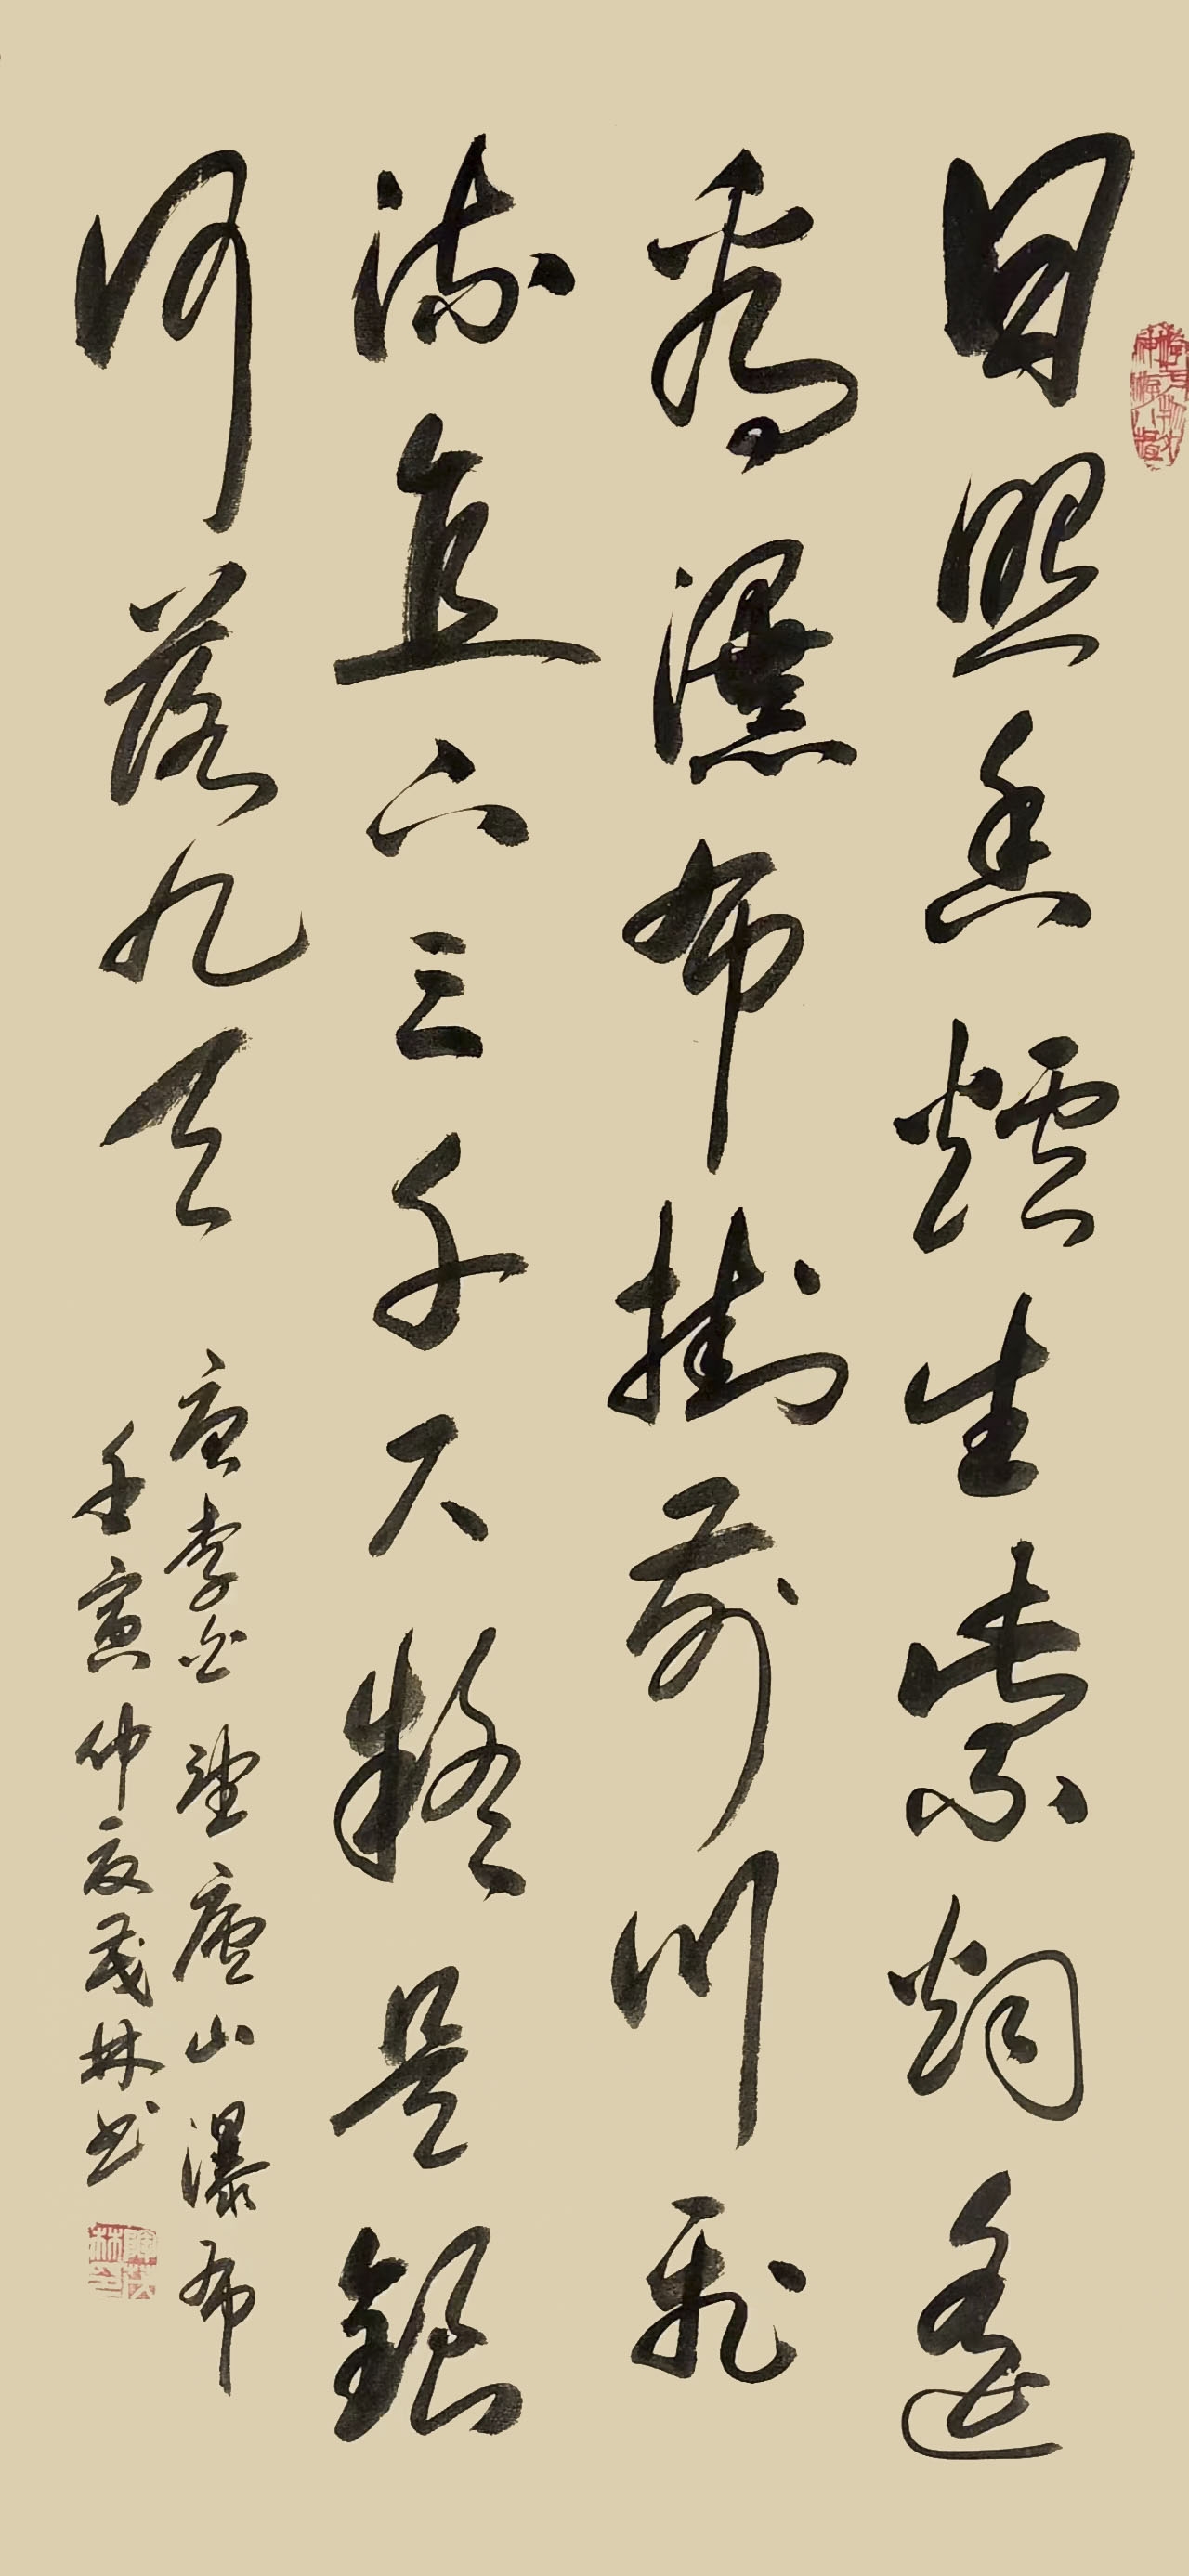 日照香爐生紫烟遙
看瀑布掛前川飛
流直下三千尺疑是銀
河落九天
唐李白望廬山瀑布
壬寅仲夏茂林书